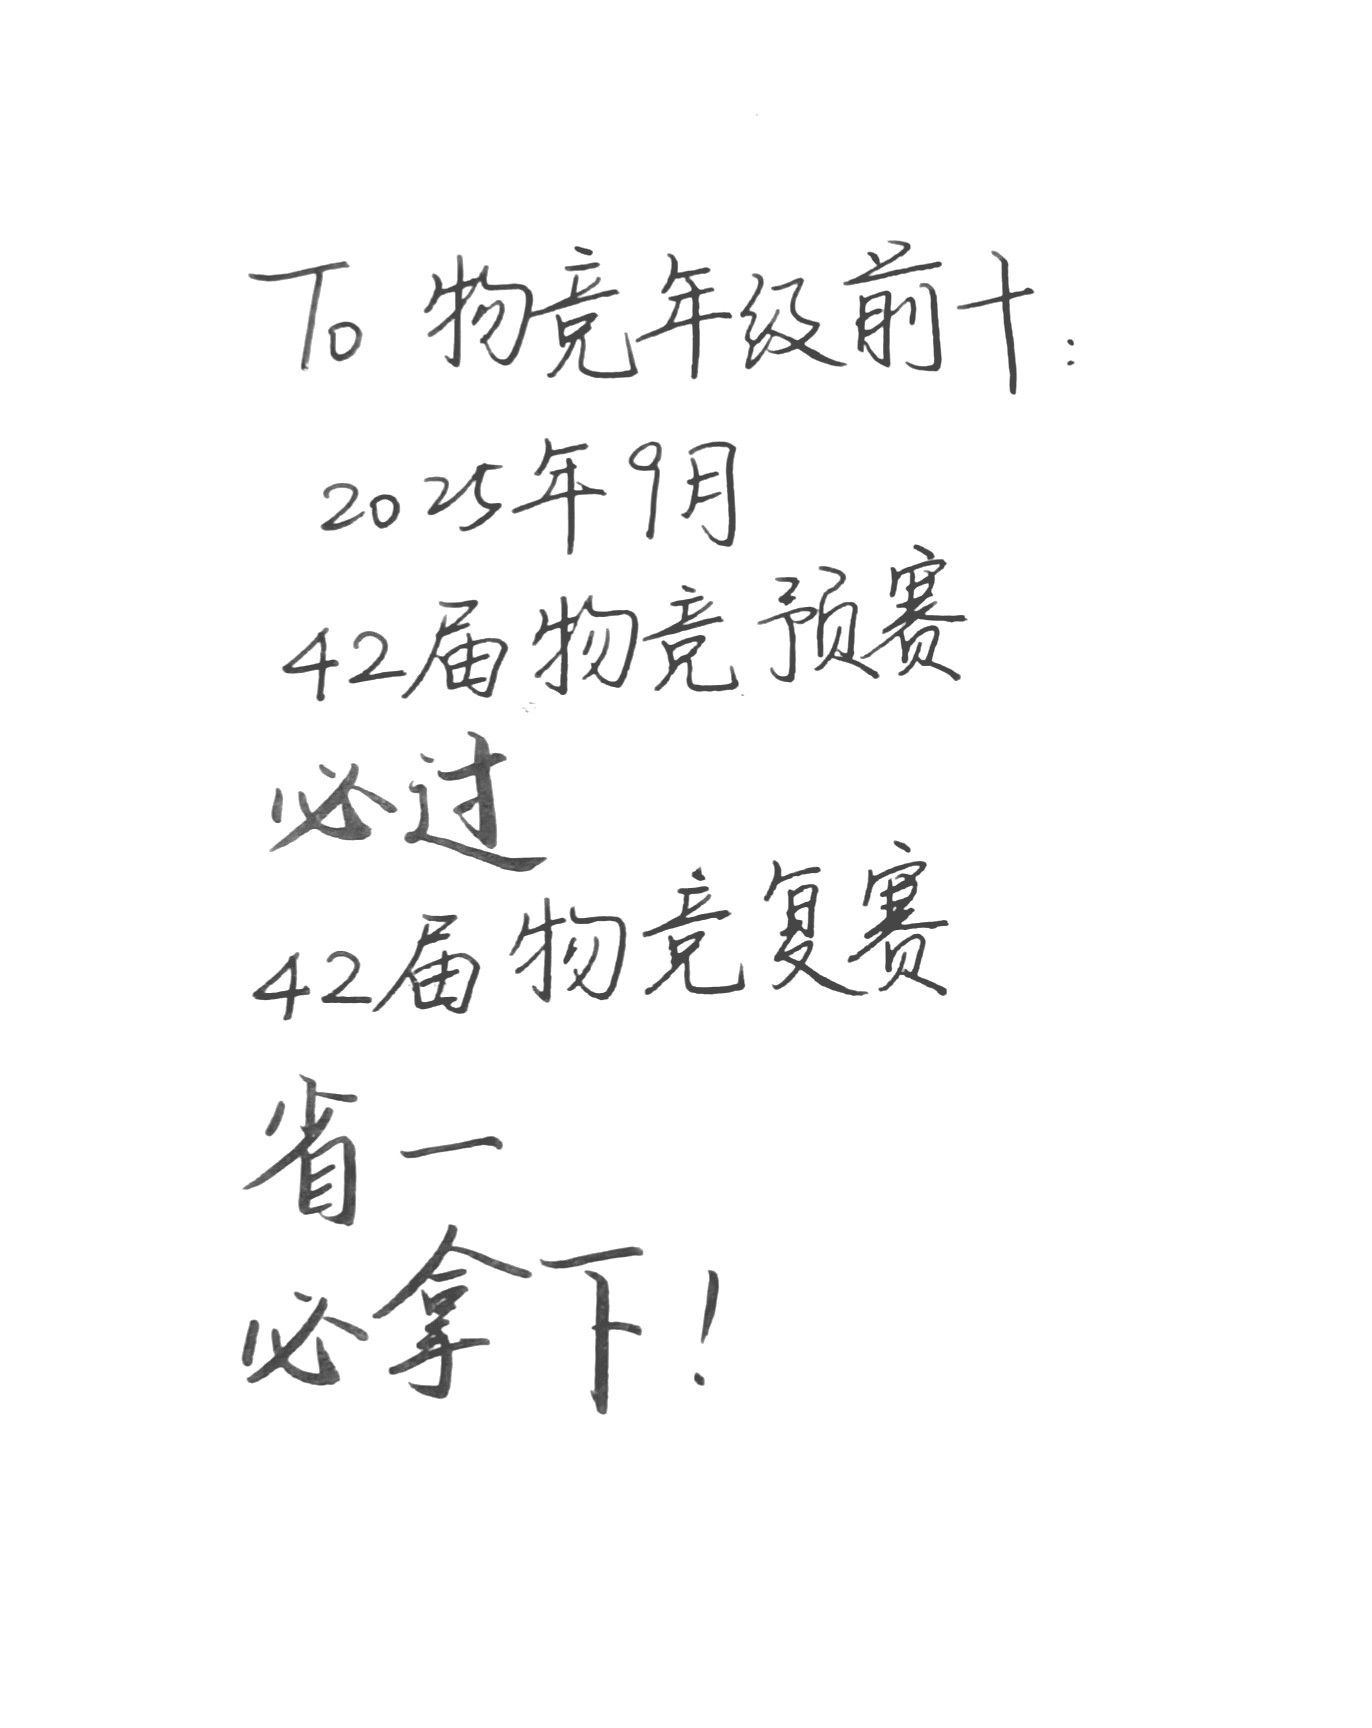 To 物竞年级前十:
2025年9月
42届物竞预赛
必过
42届物竞复赛
省一
必拿下!